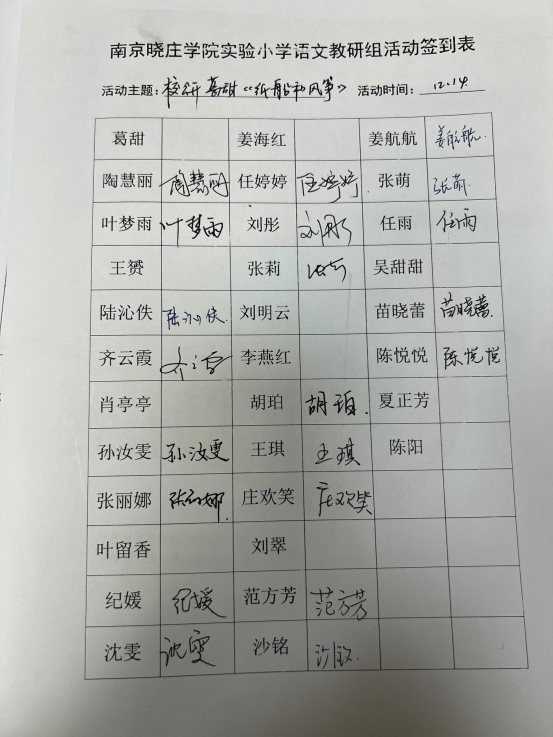 南京晓庄学院实验小学语文教研组活动签到表
活动主题：校研 葛甜《纸船和风筝》 活动时间：12.14
葛甜 姜海红 姜航航 姜航航
陶慧丽 陶慧丽 任婷婷 任婷婷 张萌 张萌
叶梦雨 叶梦雨 刘彤 刘彤 任雨 任雨
王赟 张莉 张莉 吴甜甜
陆沁佚 陆沁佚 刘明云 苗晓蕾 苗晓蕾
齐云霞 齐云霞 李燕红 陈悦悦 陈悦悦
肖亭亭 胡珀 胡珀 夏正芳
孙汝雯 孙汝雯 王琪 王琪 陈阳
张丽娜 张丽娜 庄欢笑 庄欢笑
叶留香 刘翠
纪媛 纪媛 范方芳 范方芳
沈雯 沈雯 沙铭 沙铭